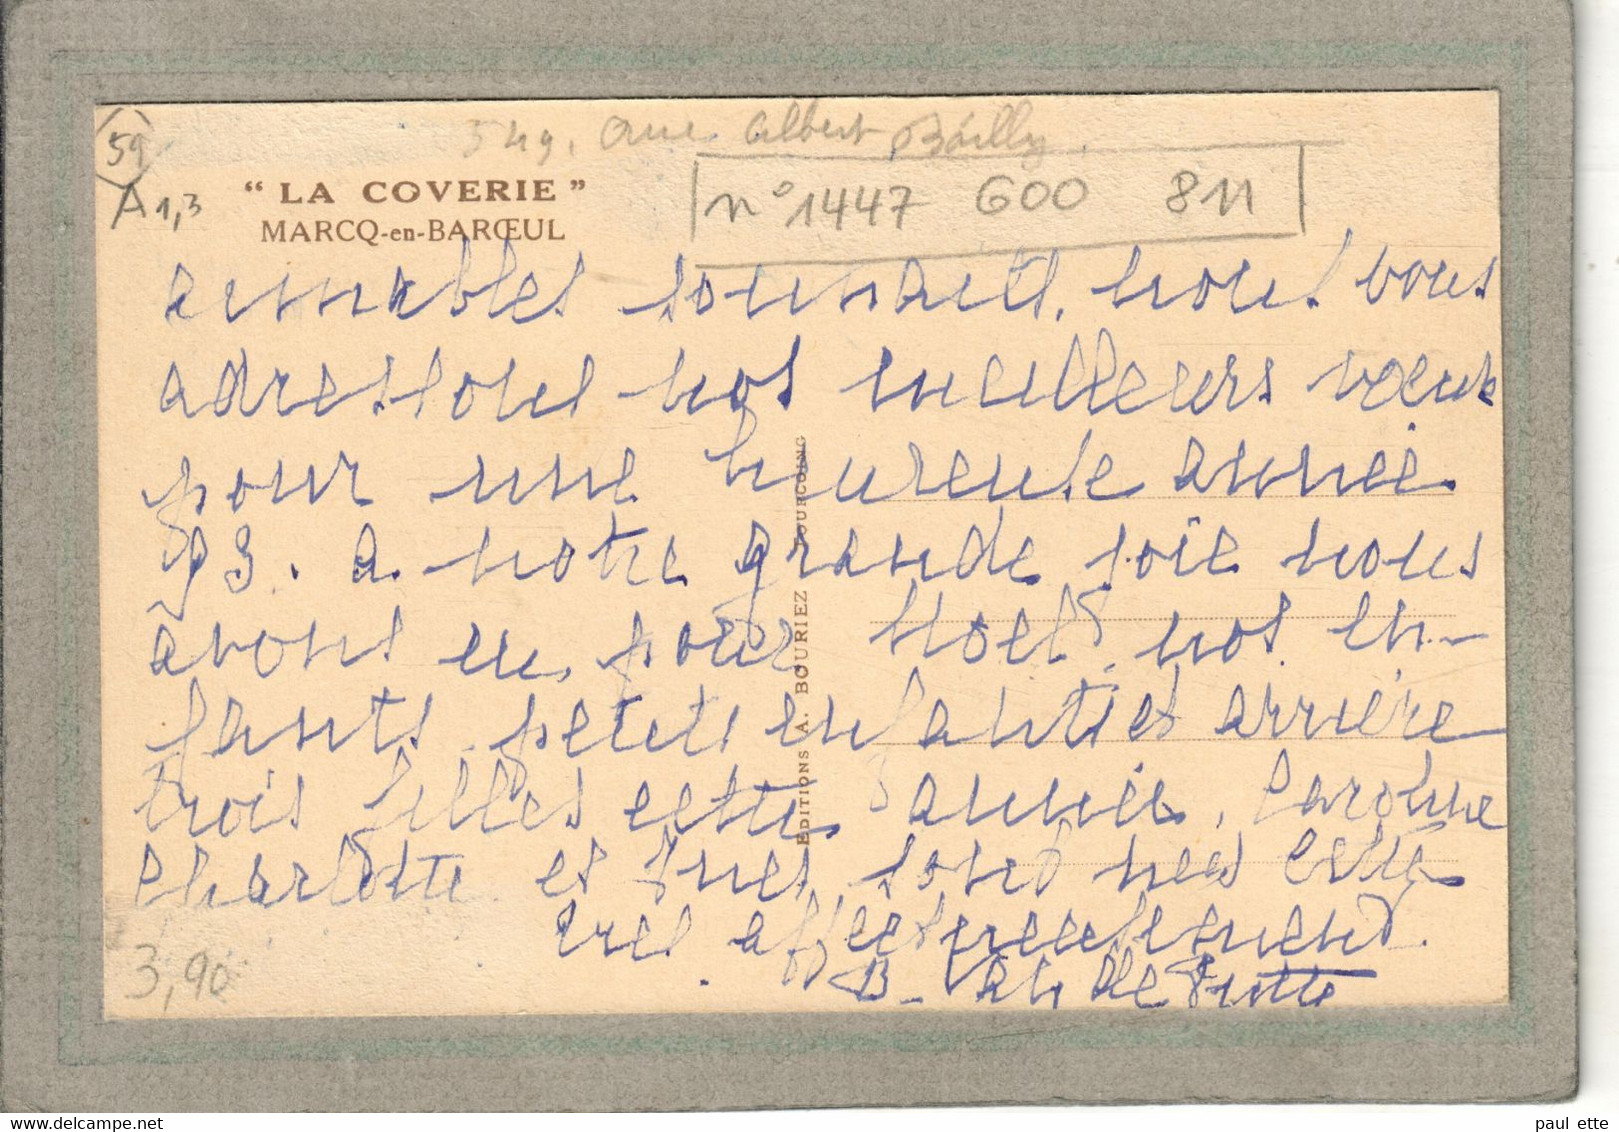 59
549, rue Albert Bailly
A 1,3
" LA COVERIE "
MARCQ-en-BARŒUL
n° 1447 600 811
aimables souhaits, nous vous
adressons nos meilleurs vœux
pour une heureuse année
93. a notre grande joie nous
avons eu pour Noel nos en-
fants, petits enfants et arriere
trois filles cette année, Caroline
Charlotte et Ines sont nees cette
tres affectueusement.
3,90
EDITIONS A. BOURIEZ TOURCOING
paul ette